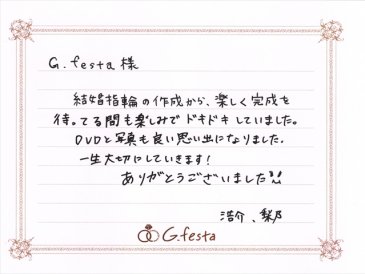 G.festa 様
結婚指輪の作成から、楽しく完成を
待ってる間も楽しみでドキドキしていました。
DVDと写真も良い思い出になりました。
一生大切にしていきます!
ありがとうございました
浩介、梨乃
G.festa